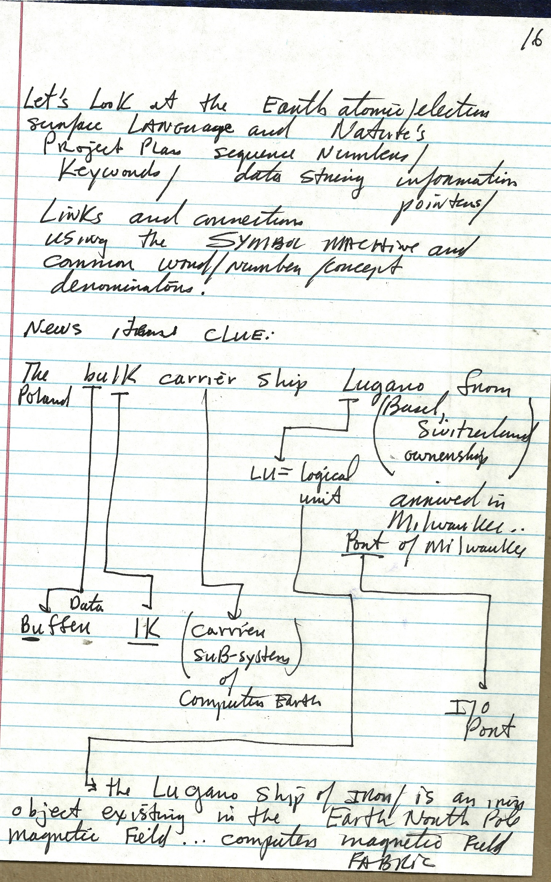 16
Let's Look at the Earth atomic/electron
surface LANguage and Nature's
Project Plan sequence Numbers/
Keywords/ data string information
pointers/
Links and connections
using the SYMBOL MACHINE and
common word/number/concept
denominators.
News items CLUE:
The bulk carrier ship Lugano, from
Poland (Basel,
Switzerland
ownership)
LU = logical
unit
arrived in
Milwaukee..
Port of Milwaukee
Data
Buffer 1K (Carrier
sub-system)
of
Computer Earth
I/O
Port
the Lugano ship of IRON/ is an iron
object existing in the Earth North Pole
magnetic Field... computer magnetic Field
FABRIC